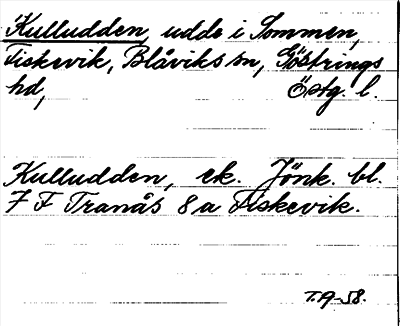 Kulludden, udde i Sommen,
Fiskevik, Blåviks sn, Göstrings
hd, Östg. l.
Kulludden, ek. Jönk. bl.
7 F Tranås 8a Fiskevik.
T.A-58.